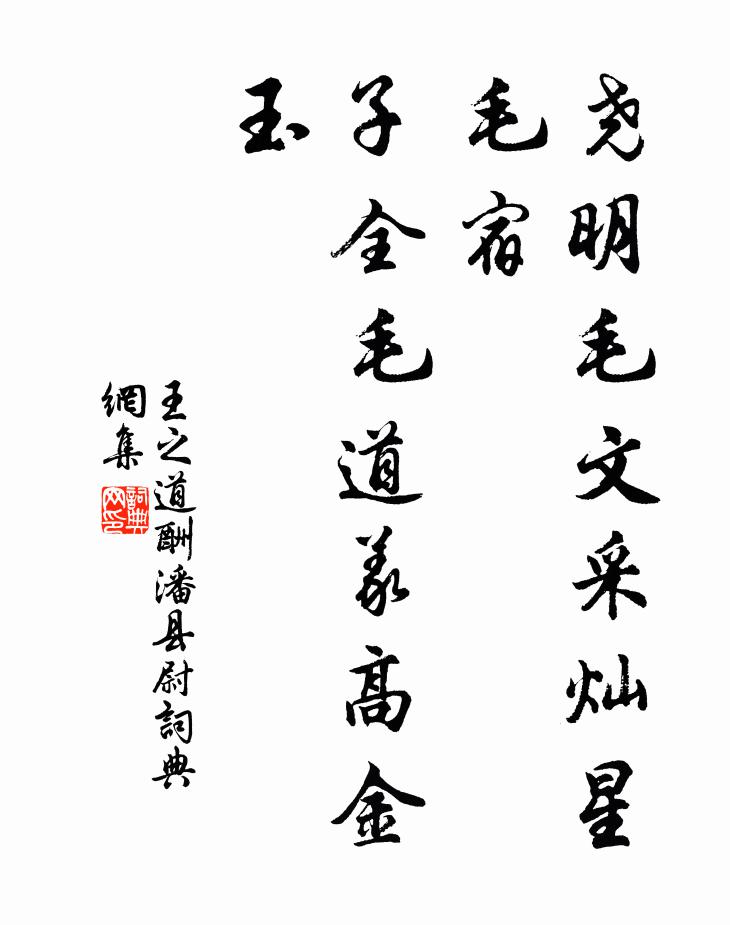 尧明毛文采灿星
毛宿
子全毛道义高金
玉
王之道酬潘县尉詞典
網集
詞典
网印